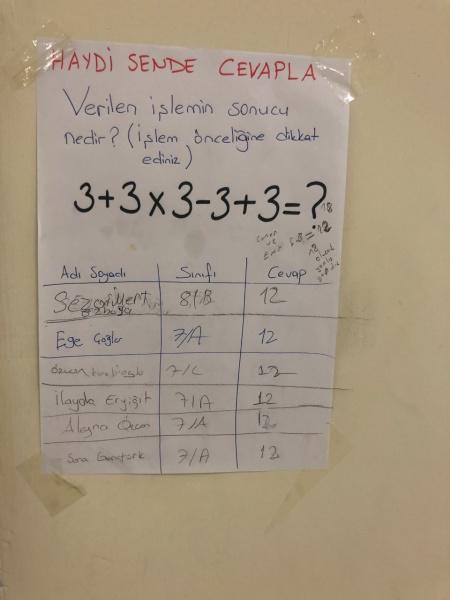 HAYDİ SENDE CEVAPLA
Verilen işlemin sonucu
nedir? (İşlem önceliğine dikkat
ediniz)
3+3x3-3+3=?
18
=12
Adı Soyadı Sınıfı Cevap
8/B 12
Ege Çağlar 7/A 12
7/C 12
İlayda Eryiğit 7/A 12
Aleyna Özcan 7/A 12
Sena Gençtürk 7/A 12